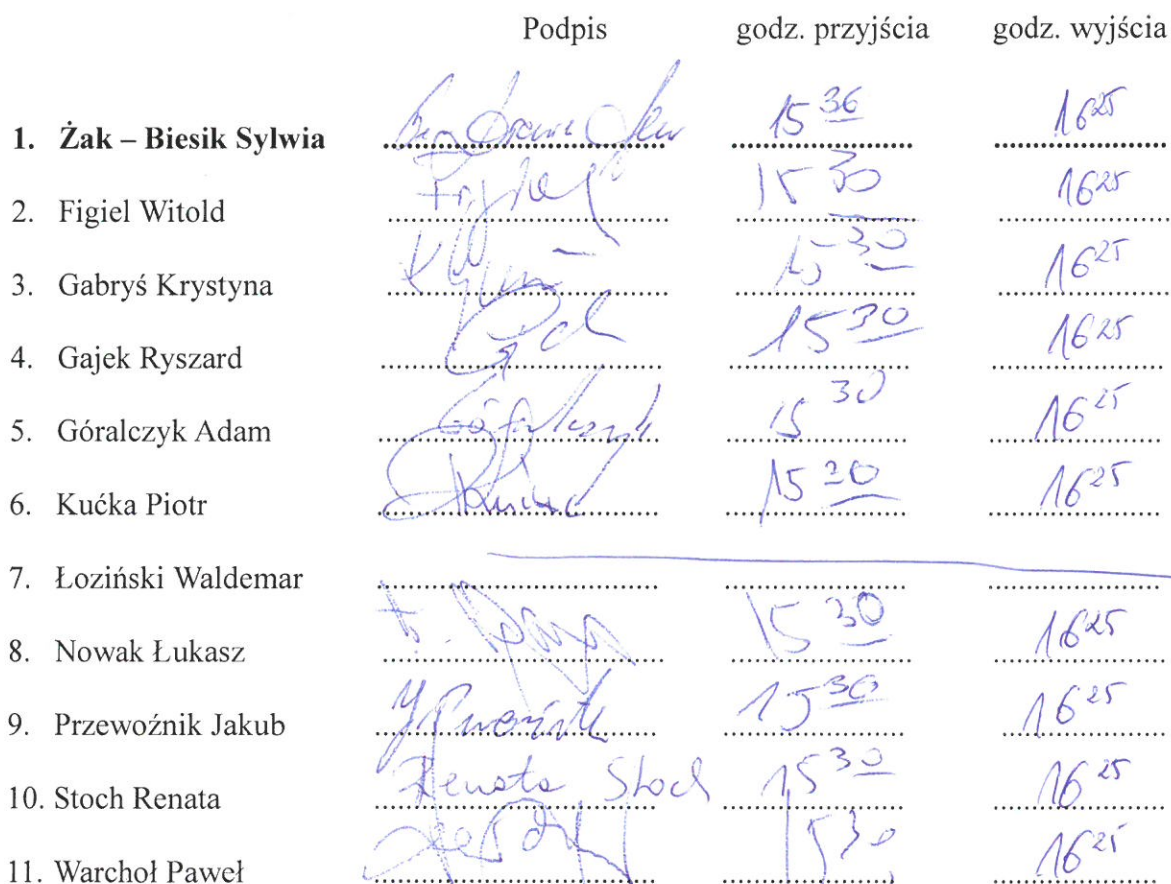 Podpis godz. przyjścia godz. wyjścia
1. Żak – Biesik Sylwia 15 36 16 25
2. Figiel Witold Figiel 15 30 16 25
3. Gabryś Krystyna 15 30 16 25
4. Gajek Ryszard 15 30 16 25
5. Góralczyk Adam Góralczyk 15 30 16 25
6. Kućka Piotr 15 30 16 25
7. Łoziński Waldemar
8. Nowak Łukasz 15 30 16 25
9. Przewoźnik Jakub 15 30 16 25
10. Stoch Renata Renata Stoch 15 30 16 25
11. Warchoł Paweł 15 30 16 25